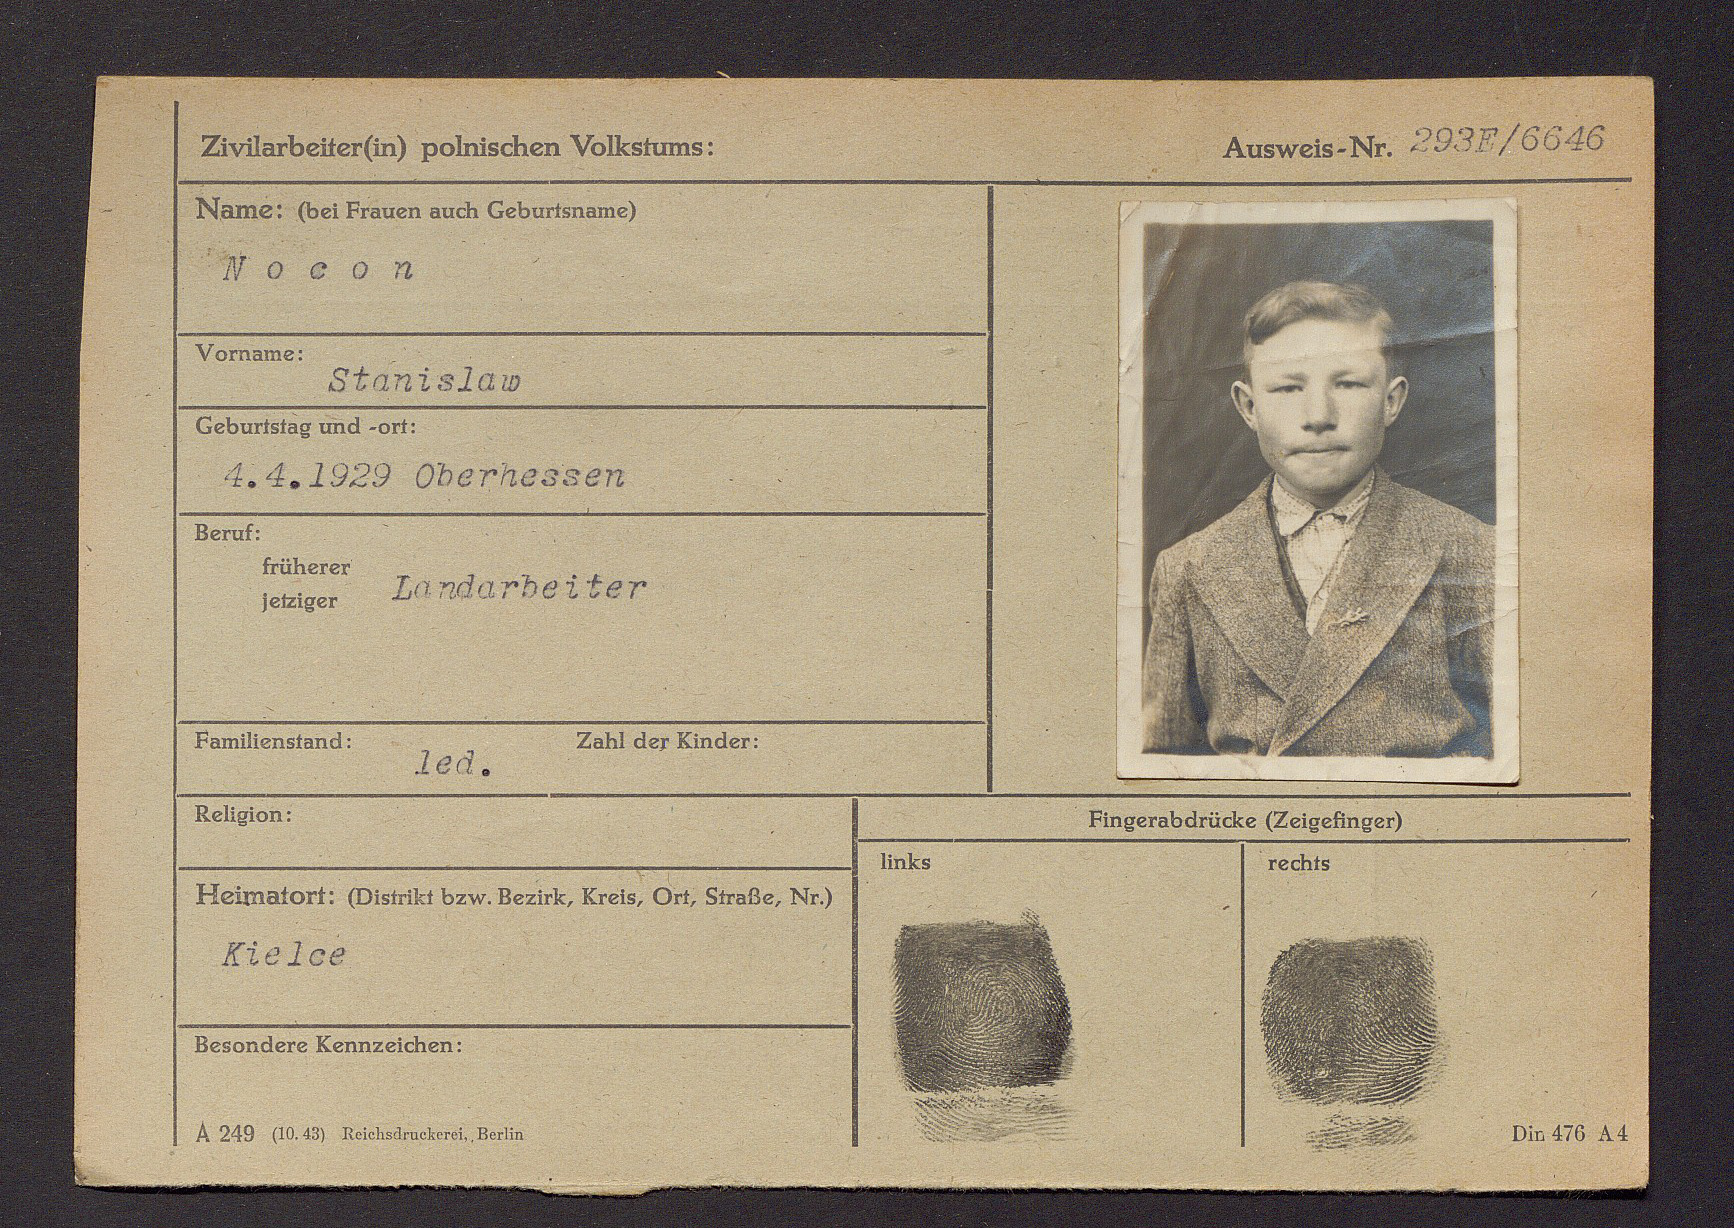 Zivilarbeiter(in) polnischen Volkstums:
Ausweis-Nr. 293E/6646
Name: (bei Frauen auch Geburtsname)
Nocon
Vorname:
Stanislaw
Geburtstag und -ort:
4.4.1929 Oberhessen
Beruf:
früherer
jetziger
Landarbeiter
Familienstand:
led.
Zahl der Kinder:
Religion:
Heimatort: (Distrikt bzw. Bezirk, Kreis, Ort, Straße, Nr.)
Kielce
Besondere Kennzeichen:
Fingerabdrücke (Zeigefinger)
links
rechts
A 249 (10.43) Reichsdruckerei, Berlin
Din 476 A4